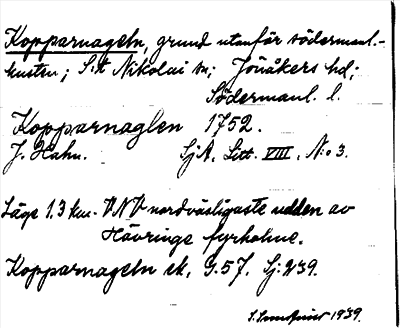 Kopparnageln, grund utanför södermanl.-
kusten; S:t Nikolai sn; Jönåkers hd;
Södermanl. l.
Kopparnaglen 1752.
J. Hahn. SjA. Litt. VIII. N:o 3.
Läge 1.3 km. VNV nordvästligaste udden av
Hävringe fyrholme.
Kopparnageln ek. G.57. Sj. 239.
1939.